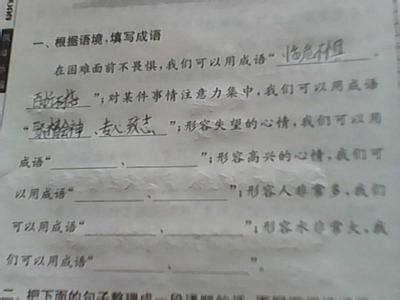 一、根据语境,填写成语
在困难面前不畏惧,我们可以用成语“临危不惧、
百折不挠”;对某件事情注意力集中,我们可以用成语
“聚精会神、专心致志”;形容失望的心情,我们可以用
成语“______、______”;形容高兴的心情,我们可
以用成语“______、______”;形容人非常多,我们
可以用成语“______、______”;形容水非常大,我
们可以用成语“______、______”。
二、把下面的句子整理成一段通顺的话